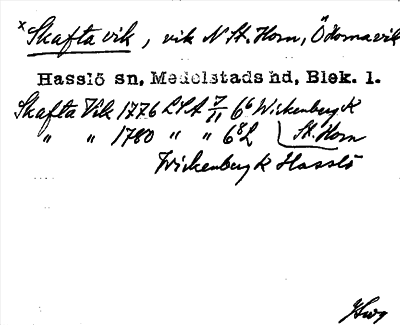 x Skafta vik, vik N St. Horn, Ödomavik
Hasslö sn, Medelstads hd, Blek. l.
Skafta Vik 1776 LSA 7/11 6b Wickenberg K
" " 1780 " " 6 8 L St. Horn
Wickenberg K Hasslö